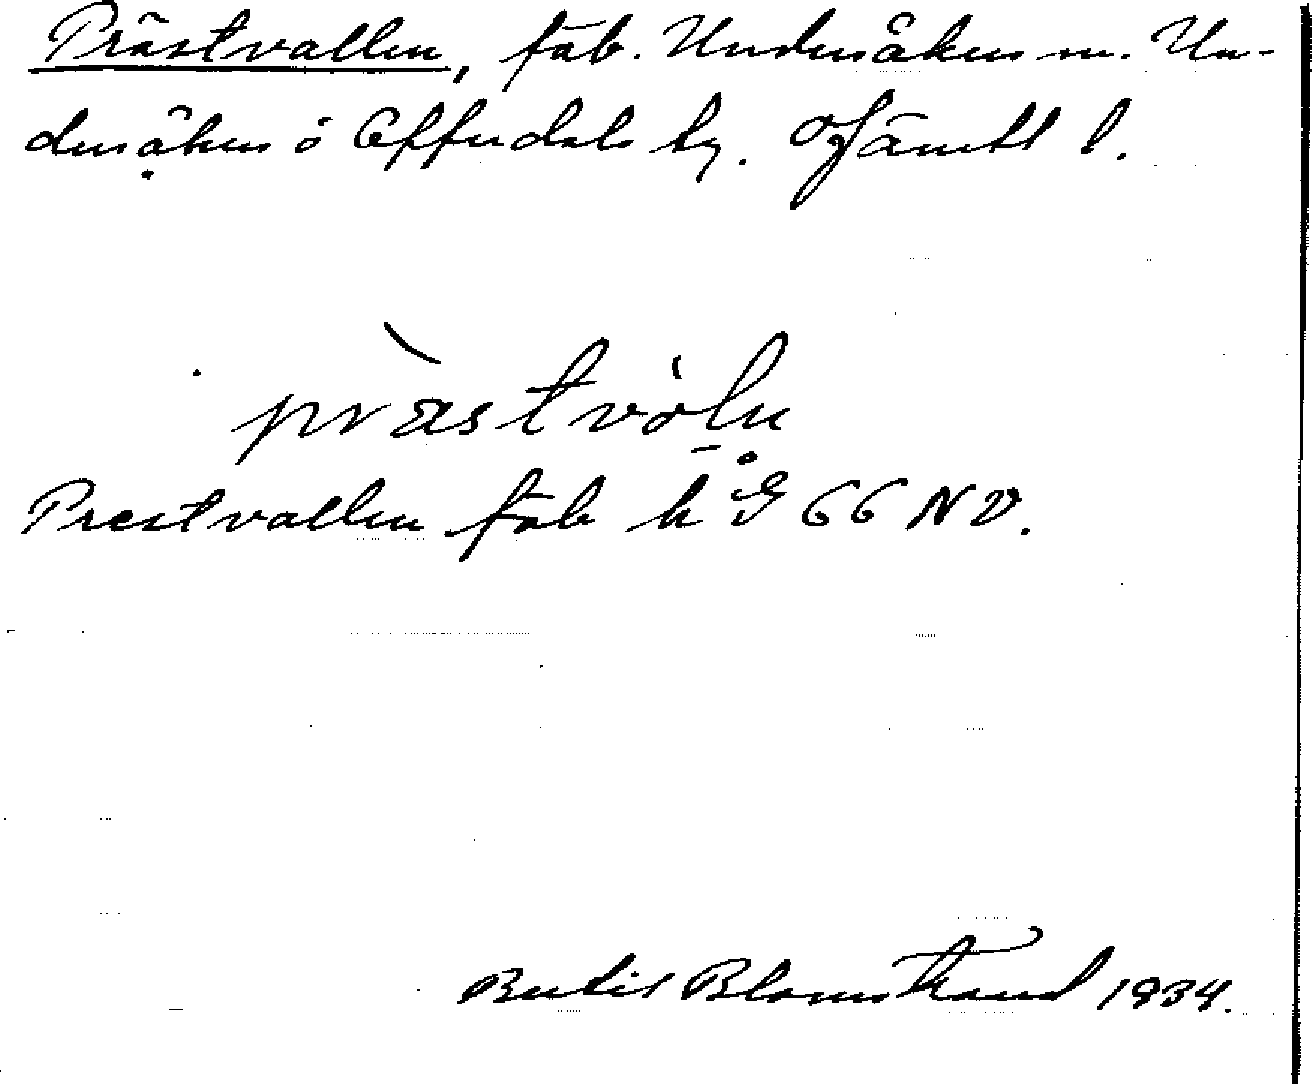 Prästvallen, fäb. Undersåkers sn. Un-
dersåkers o Offerdals tg. Jämtl l.
prästvöln
Prestvallen fäb k G 66 NV.
Bertil Blomstrand 1934.